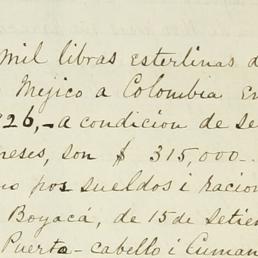 mil libras esterlinas d
Mejico a Colombia en
26,- a condicion de se
meses, son $ 315,000-
no por sueldos i racion
Boyacá, de 15 de setien
Puerto-cabello i Cuman